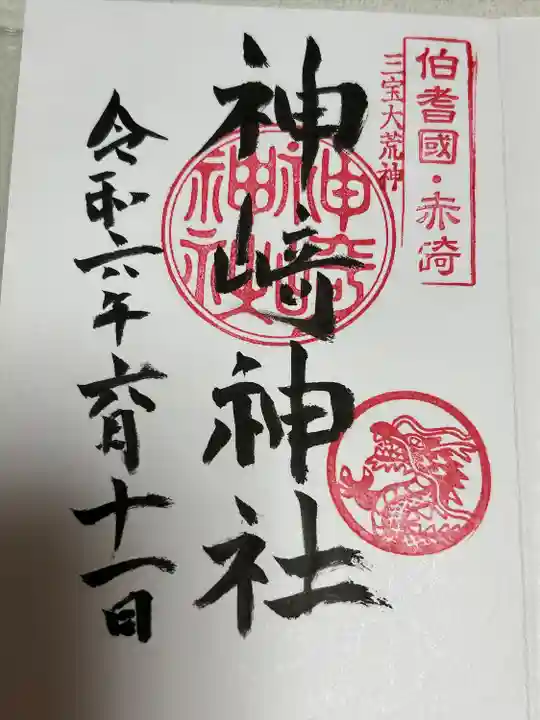 伯耆國・赤崎
三宝大荒神
神﨑神社
令和六年六月十一日